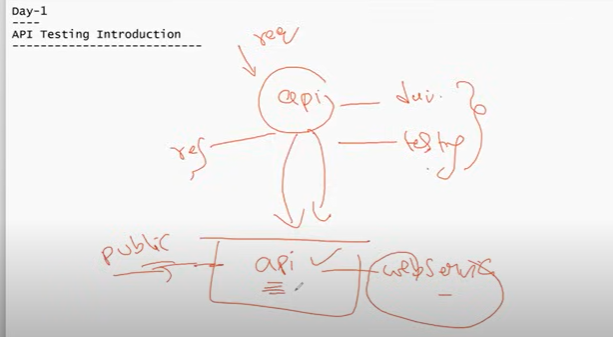 Day-1
----
API Testing Introduction
----------------------------
req
api
res
testing
public
api
webservice